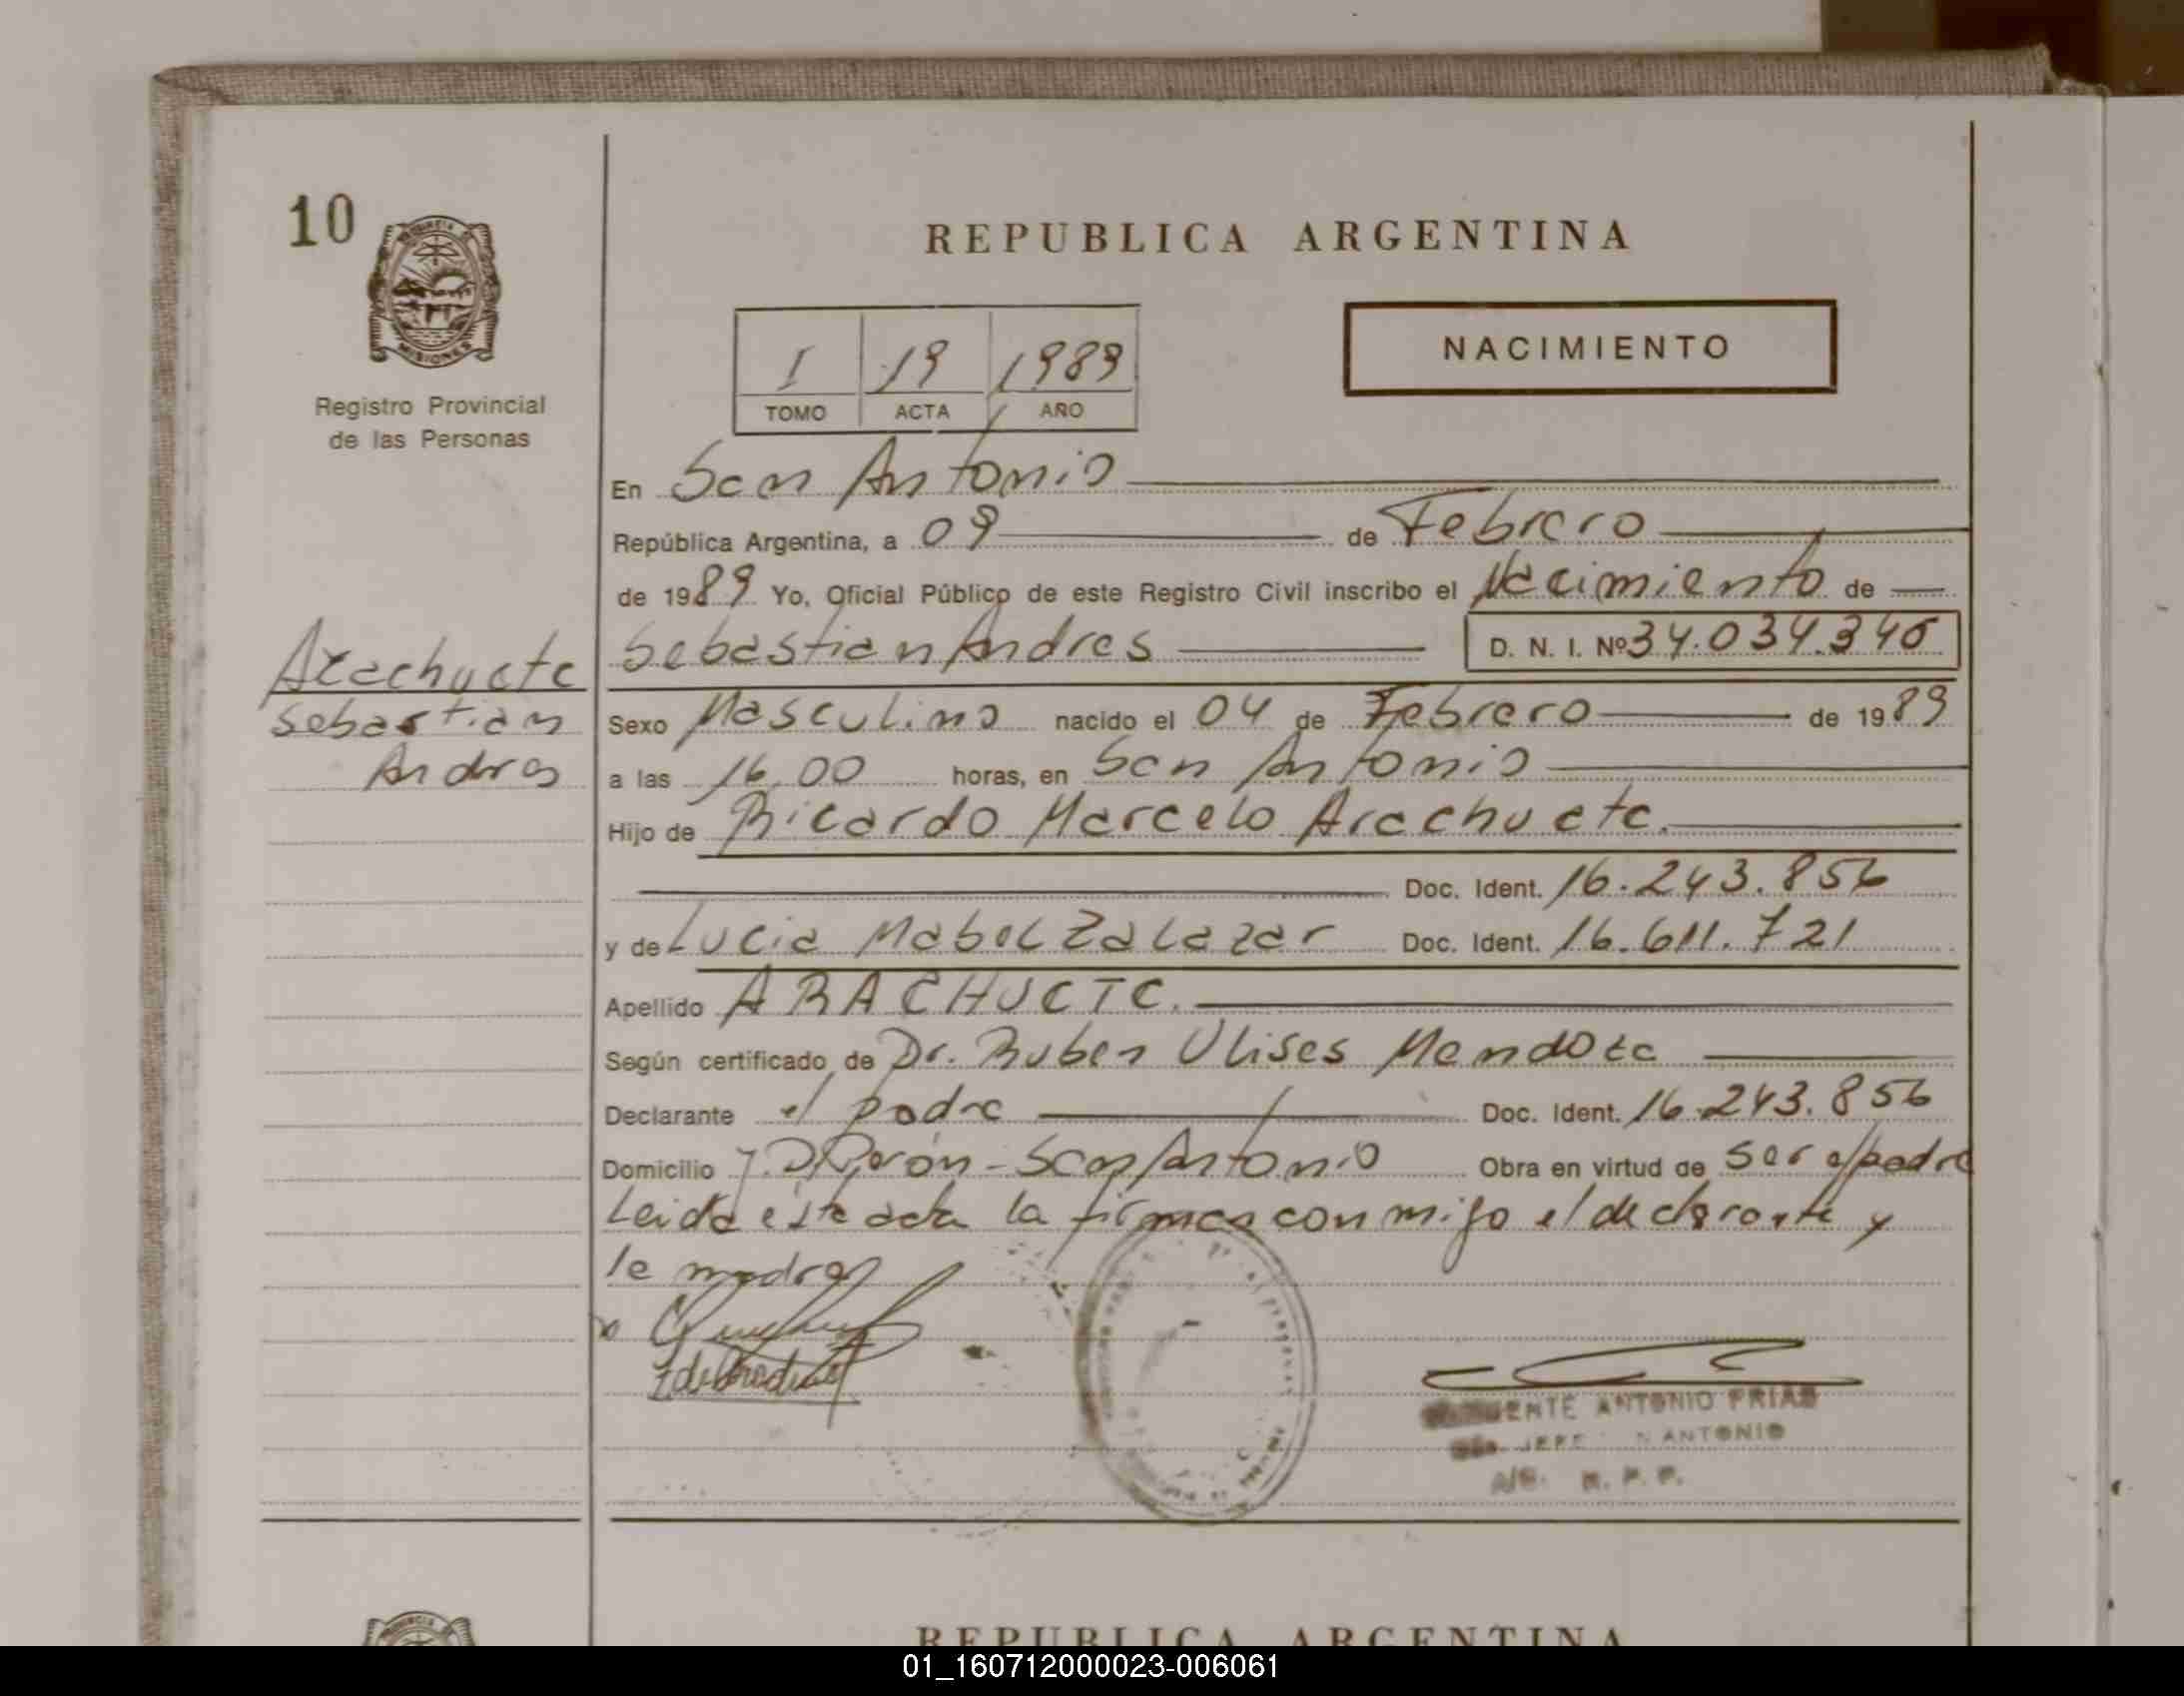 10
REPUBLICA ARGENTINA
NACIMIENTO
I 19 1989
TOMO ACTA AÑO
MISIONES
Registro Provincial
de las Personas
En San Antonio
República Argentina, a 09 de Febrero
de 1989 Yo, Oficial Público de este Registro Civil inscribo el Nacimiento de
Sebastian Andres D. N. I. Nº 34.034.346
Arachuete
Sebastian
Andres
Sexo Masculino nacido el 04 de Febrero de 1989
a las 16,00 horas, en San Antonio
Hijo de Ricardo Marcelo Arachuete.
Doc. Ident. 16.243.856
y de Lucia Mabel Zalazar Doc. Ident. 16.611.721
Apellido ARACHUETE.
Según certificado de Dr. Ruben Ulises Mendoza
Declarante el padre Doc. Ident. 16.243.856
Domicilio J.D.Perón - San Antonio Obra en virtud de ser el padre
Leida este acta la firman conmigo el declarante y
la madre
ANTONIO FRIAS
JEFE ANTONIO
R. P. P.
REPUBLICA ARGENTINA
01_160712000023-006061